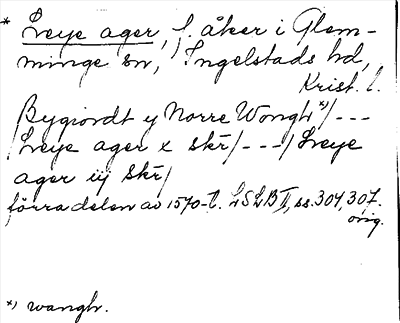 * Leye ager, f. åker i Glem-
minge sn, Ingelstads hd,
Krist. l.
Bygiordt y Norre Wongh*)/---
/Leye ager x skr̄/---/Leye
ager iij skr̄/
förra delen av 1570-t. LSLB II, ss. 304, 307.
orig.
*) wangh.